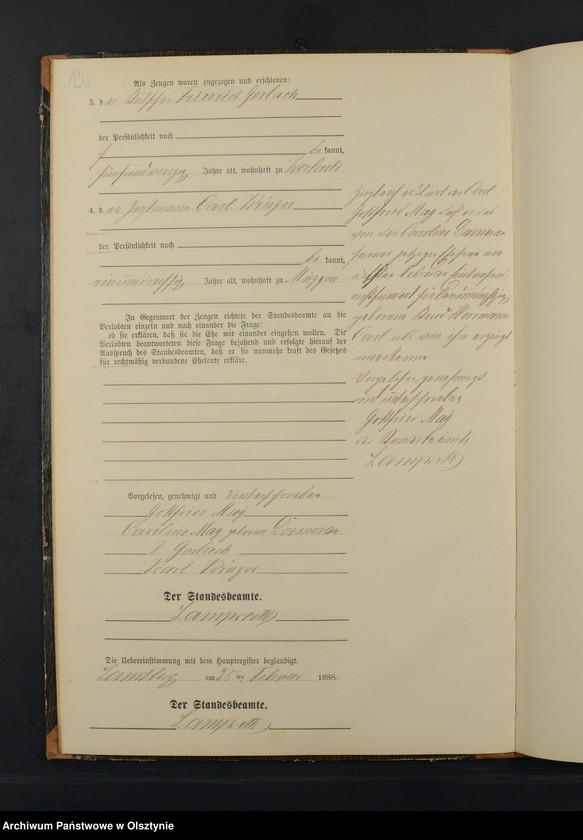 Als Zeugen waren zugezogen und erschienen:
3. der Friedrich Gerlach
der Persönlichkeit nach
bekannt,
Jahre alt, wohnhaft zu
4. der Carl
der Persönlichkeit nach
bekannt,
Jahre alt, wohnhaft zu
In Gegenwart der Zeugen richtete der Standesbeamte an die
Verlobten einzeln und nach einander die Frage:
ob sie erklären, daß sie die Ehe mit einander eingehen wollen. Die
Verlobten beantworteten diese Frage bejahend und erfolgte hierauf der
Ausspruch des Standesbeamten, daß er sie nunmehr kraft des Gesetzes
für rechtmäßig verbundene Eheleute erkläre.
Vorgelesen, genehmigt und unterschrieben
Gottfried May
Caroline May geborene Damerau
F Gerlach
Karl
Der Standesbeamte.
Lamprecht
Die Uebereinstimmung mit dem Hauptregister beglaubigt.
Landsberg am 25 ten Februar 1888.
Der Standesbeamte.
Lamprecht
erklärt der
Gottfried May daß er das
von der Caroline Damerau
seiner jetzigen Ehefrau am
Februar
geborene Kind Hermann
Carl als von ihm erzeugt
anerkenne.
Vorgelesen, genehmigt
und unterschrieben
Gottfried May
der Standesbeamte
Lamprecht
Archiwum Państwowe w Olsztynie